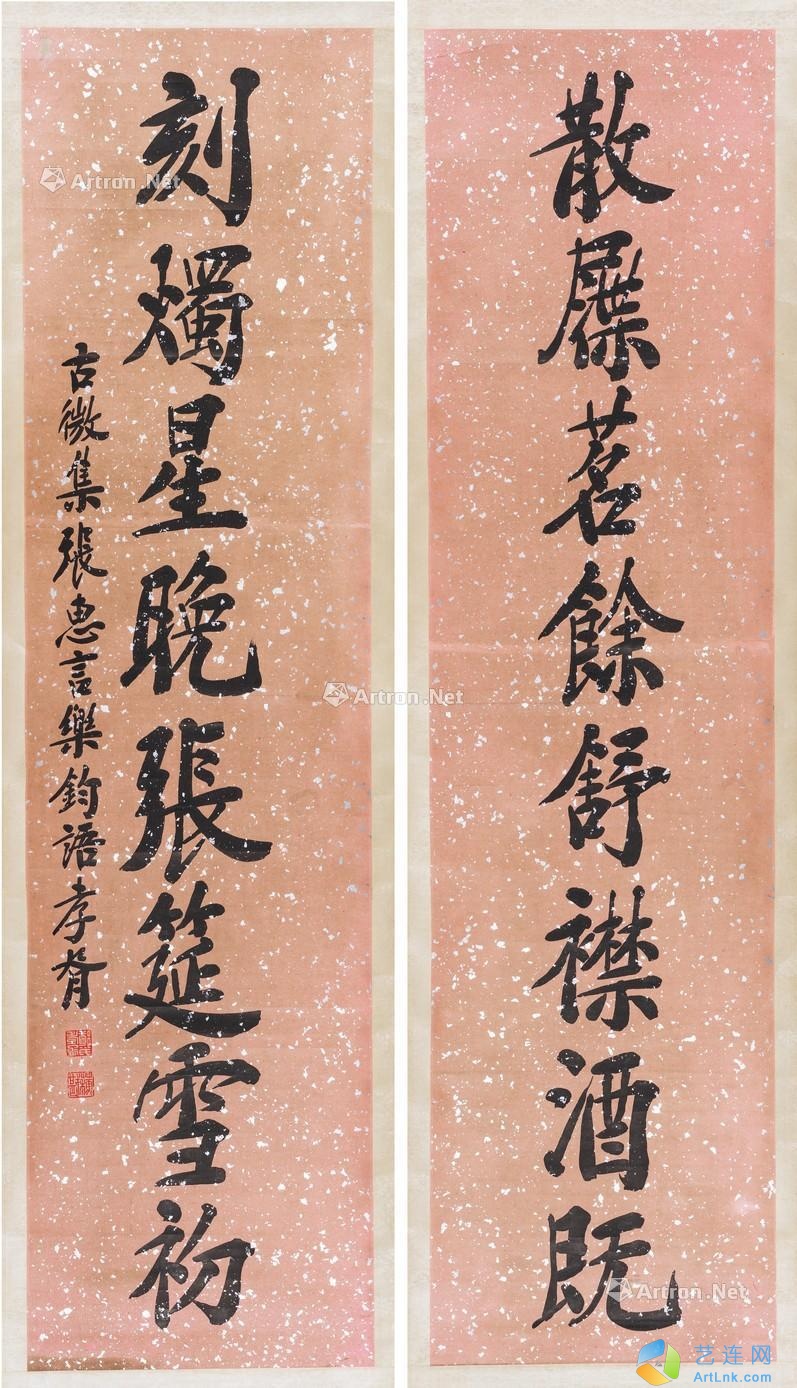 散屧茗餘舒襟酒既
刻燭星晚張筵雪初
古微集張惠言樂鈞語孝胥
Artron.Net
Artron.Net
Artron.Net
艺连网
ArtLnk.com